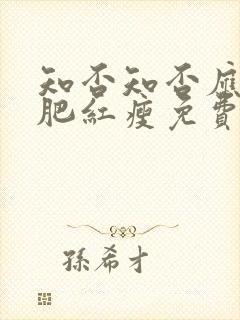 知否知否應
肥紅瘦免費
孫希才